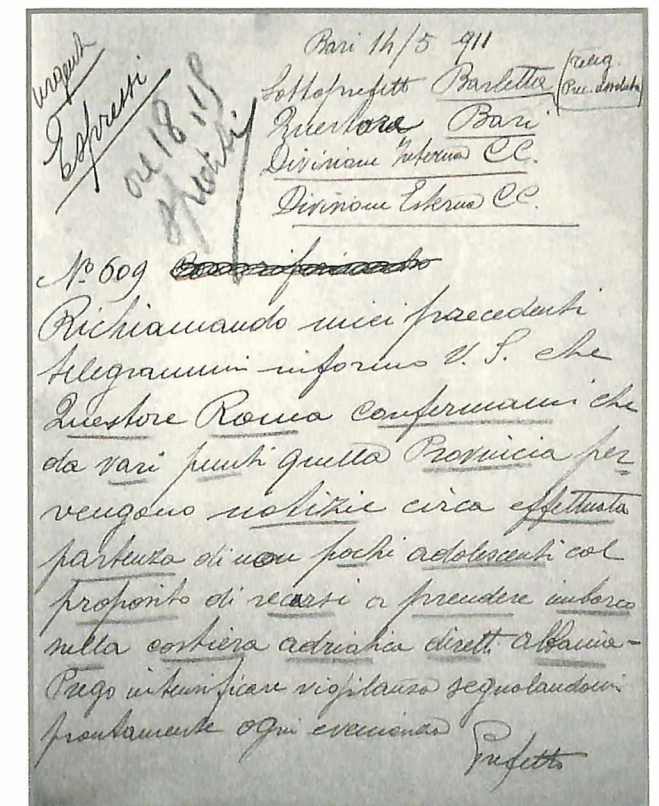 urgenti
Espressi
ore 18.15
spediti
Bari 14/5 911
Sottoprefetto Barletta
teleg.
Prec. assoluta
Questore Bari
Divisione Interna CC.
Divisione Esterna CC.
N° 609
Richiamando miei praecedenti
telegrammi informo V. S. che
Questore Roma confermami che
da vari punti quella Provincia per=
vengono notizie circa effettuata
partenza di non pochi adolescenti col
proposito di recarsi a prendere imbarco
nella costiera adriatica diretti Albania -
Prego intensificare vigilanza segnalandomi
prontamente ogni evenienza
Prefetto